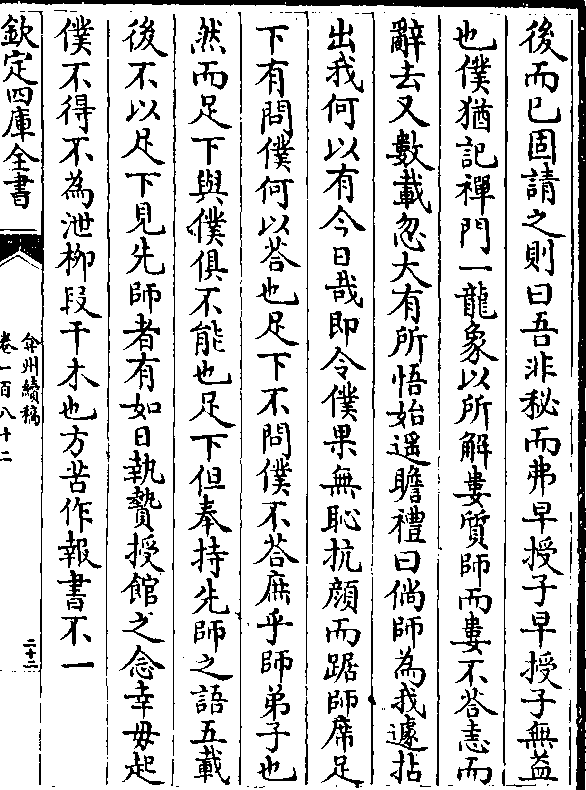 後而已固請之則曰吾非秘而弗早授子早授子無益
也僕猶記禪門一龍象以所解婁質師而婁不荅恚而
辭去又數載忽大有所悟始遥瞻禮曰倘師為我遽拈
出我何以有今日哉即令僕果無恥抗顔而踞師席足
下有問僕何以荅也足下不問僕不荅庶乎師弟子也
然而足下與僕俱不能也足下但奉持先師之語五載
後不以足下見先師者有如日執贄授館之念幸毋起
僕不得不為泄柳段干木也方苦作報書不一
欽定四庫全書
弇州續稿
卷一百八十二
二十二